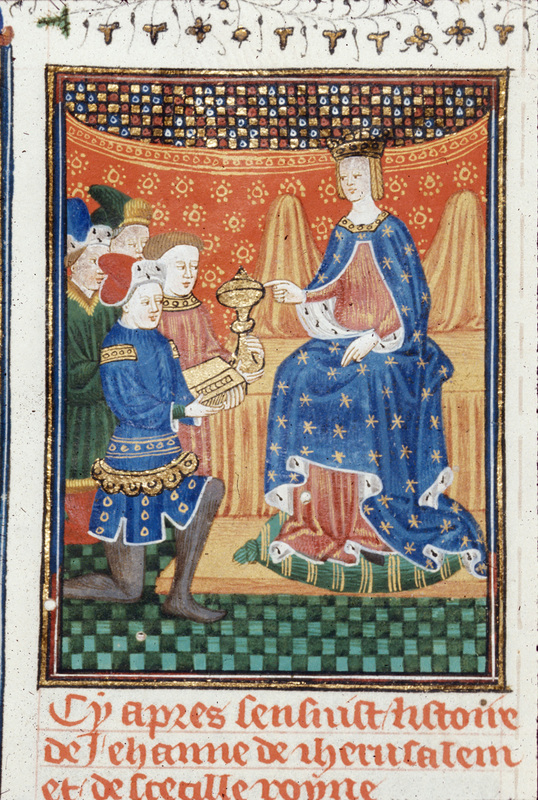 Cy apres sensuist listoire
de Jehanne de iherusalem
et de scecille royne